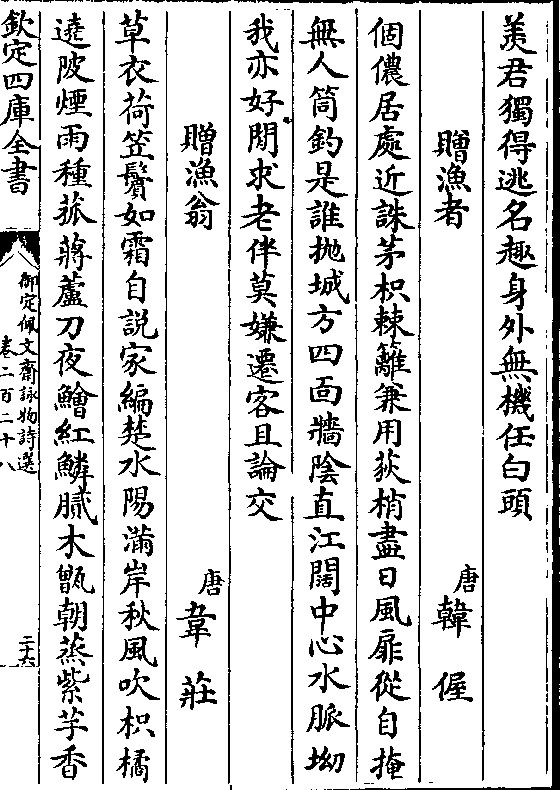 羨君獨得逃名趣身外無機任白頭
贈漁者
唐韓偓
個儂居處近誅茅枳棘籬兼用荻梢盡日風扉從自掩
無人筒釣是誰抛城方四面牆陰直江闊中心水脈坳
我亦好閒求老伴莫嫌遷客且論交
贈漁翁
唐韋莊
草衣荷笠鬢如霜自說家編楚水陽滿岸秋風吹枳橘
遶陂煙雨種菰蔣蘆刀夜鱠紅鱗膩木甑朝蒸紫芋香
欽定四庫全書
御定佩文齋詠物詩選
卷二百二十八
二十六